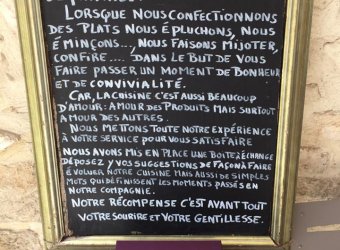 Lorsque nous confectionnons
des plats nous épluchons, nous
éminçons..., nous faisons mijoter,
confire.... dans le but de vous
faire passer un moment de bonheur
et de convivialité.
Car, la cuisine c'est aussi beaucoup
d'amour: amour des produits mais surtout
amour des autres.
Nous mettons toute notre expérience
à votre service pour vous satisfaire
Nous avons mis en place une boite à échange
déposez y vos suggestions de façon à faire
évoluer notre cuisine mais aussi de simples
mots qui définissent les moments passés en
notre compagnie.
Notre récompense c'est avant tout
votre sourire et votre gentillesse.